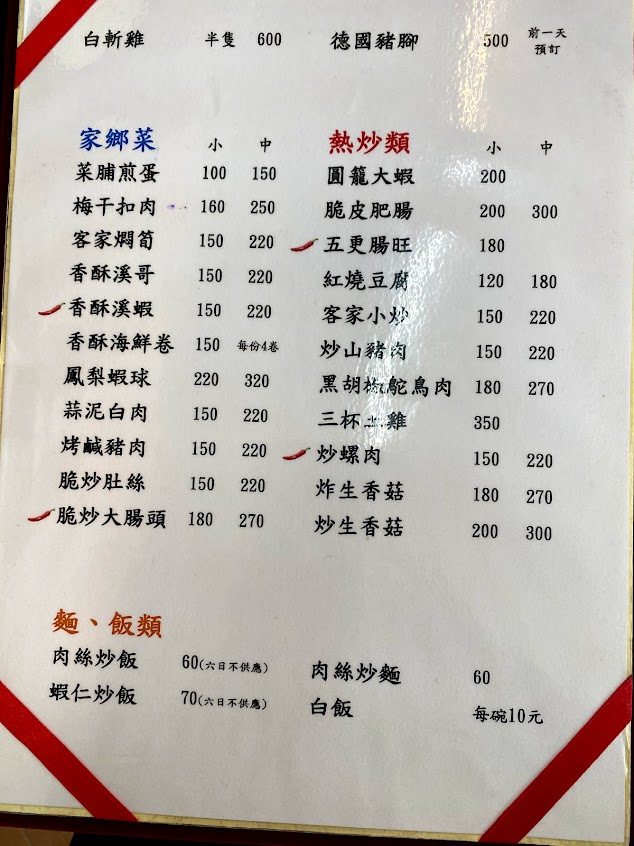 白斬雞 半隻 600
德國豬腳 500 前一天
預訂
家鄉菜 小 中
菜脯煎蛋 100 150
梅干扣肉 160 250
客家燜筍 150 220
香酥溪哥 150 220
香酥溪蝦 150 220
香酥海鮮卷 150 每份4卷
鳳梨蝦球 220 320
蒜泥白肉 150 220
烤鹹豬肉 150 220
脆炒肚絲 150 220
脆炒大腸頭 180 270
熱炒類 小 中
圓籠大蝦 200
脆皮肥腸 200 300
五更腸旺 180
紅燒豆腐 120 180
客家小炒 150 220
炒山豬肉 150 220
黑胡椒鴕鳥肉 180 270
三杯土雞 350
炒螺肉 150 220
炸生香菇 180 270
炒生香菇 200 300
麵、飯類
肉絲炒飯 60(六日不供應)
蝦仁炒飯 70(六日不供應)
肉絲炒麵 60
白飯 每碗10元